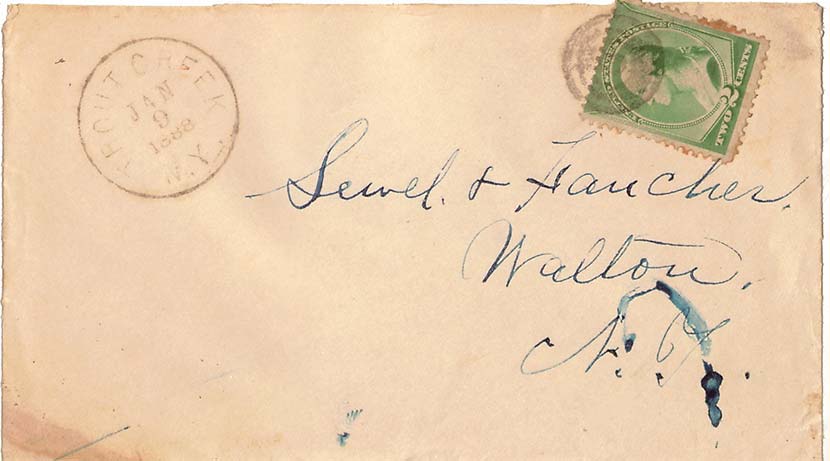 TROUT CREEK
JAN
9
1888
N.Y.
UNITED STATES POSTAGE
TWO 2 CENTS
Sewel. & Fancher.
Walton.
N. Y.